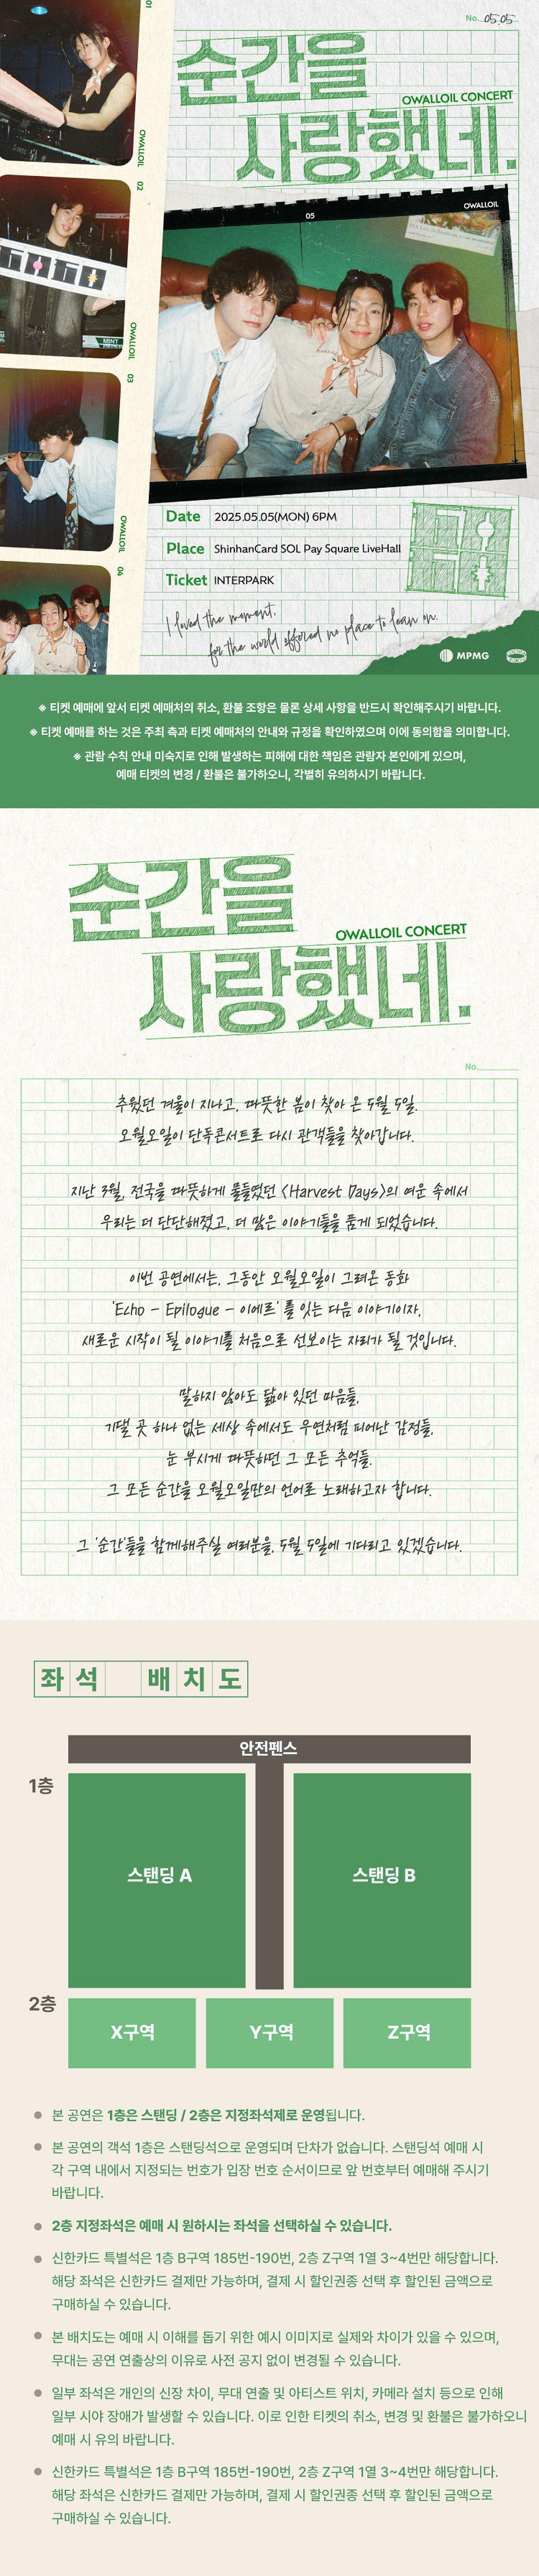 No. 05.05
순간을
OWALLOIL CONCERT
사랑했네.
01
OWALLOIL
02
OWALLOIL
03
OWALLOIL
04
05
OWALLOIL
Date 2025.05.05(MON) 6PM
Place ShinhanCard SOL Pay Square LiveHall
Ticket INTERPARK
I loved the moment.
for the world offered no place to lean on.
MPMG
※ 티켓 예매에 앞서 티켓 예매처의 취소, 환불 조항은 물론 상세 사항을 반드시 확인해주시기 바랍니다.
※ 티켓 예매를 하는 것은 주최 측과 티켓 예매처의 안내와 규정을 확인하였으며 이에 동의함을 의미합니다.
※ 관람 수칙 안내 미숙지로 인해 발생하는 피해에 대한 책임은 관람자 본인에게 있으며,
예매 티켓의 변경 / 환불은 불가하오니, 각별히 유의하시기 바랍니다.
순간을
OWALLOIL CONCERT
사랑했네.
No.
추웠던 겨울이 지나고, 따뜻한 봄이 찾아 온 5월 5일.
오월오일이 단독콘서트로 다시 관객들을 찾아갑니다.
지난 3월, 전국을 따뜻하게 물들였던 <Harvest Days>의 여운 속에서
우리는 더 단단해졌고, 더 많은 이야기들을 품게 되었습니다.
이번 공연에서는, 그동안 오월오일이 그려온 동화
'Echo - Epilogue - 이에르' 를 잇는 다음 이야기이자,
새로운 시작이 될 이야기를 처음으로 선보이는 자리가 될 것입니다.
말하지 않아도 닮아 있던 마음들,
기댈 곳 하나 없는 세상 속에서도 우연처럼 피어난 감정들,
눈 부시게 따뜻하던 그 모든 추억들.
그 모든 순간을 오월오일만의 언어로 노래하고자 합니다.
그 '순간'들을 함께해주실 여러분을, 5월 5일에 기다리고 있겠습니다.
좌석 배치도
안전펜스
1층
스탠딩 A
스탠딩 B
2층
X구역
Y구역
Z구역
본 공연은 1층은 스탠딩 / 2층은 지정좌석제로 운영됩니다.
본 공연의 객석 1층은 스탠딩석으로 운영되며 단차가 없습니다. 스탠딩석 예매 시
각 구역 내에서 지정되는 번호가 입장 번호 순서이므로 앞 번호부터 예매해 주시기
바랍니다.
2층 지정좌석은 예매 시 원하시는 좌석을 선택하실 수 있습니다.
신한카드 특별석은 1층 B구역 185번-190번, 2층 Z구역 1열 3~4번만 해당합니다.
해당 좌석은 신한카드 결제만 가능하며, 결제 시 할인권종 선택 후 할인된 금액으로
구매하실 수 있습니다.
본 배치도는 예매 시 이해를 돕기 위한 예시 이미지로 실제와 차이가 있을 수 있으며,
무대는 공연 연출상의 이유로 사전 공지 없이 변경될 수 있습니다.
일부 좌석은 개인의 신장 차이, 무대 연출 및 아티스트 위치, 카메라 설치 등으로 인해
일부 시야 장애가 발생할 수 있습니다. 이로 인한 티켓의 취소, 변경 및 환불은 불가하오니
예매 시 유의 바랍니다.
신한카드 특별석은 1층 B구역 185번-190번, 2층 Z구역 1열 3~4번만 해당합니다.
해당 좌석은 신한카드 결제만 가능하며, 결제 시 할인권종 선택 후 할인된 금액으로
구매하실 수 있습니다.